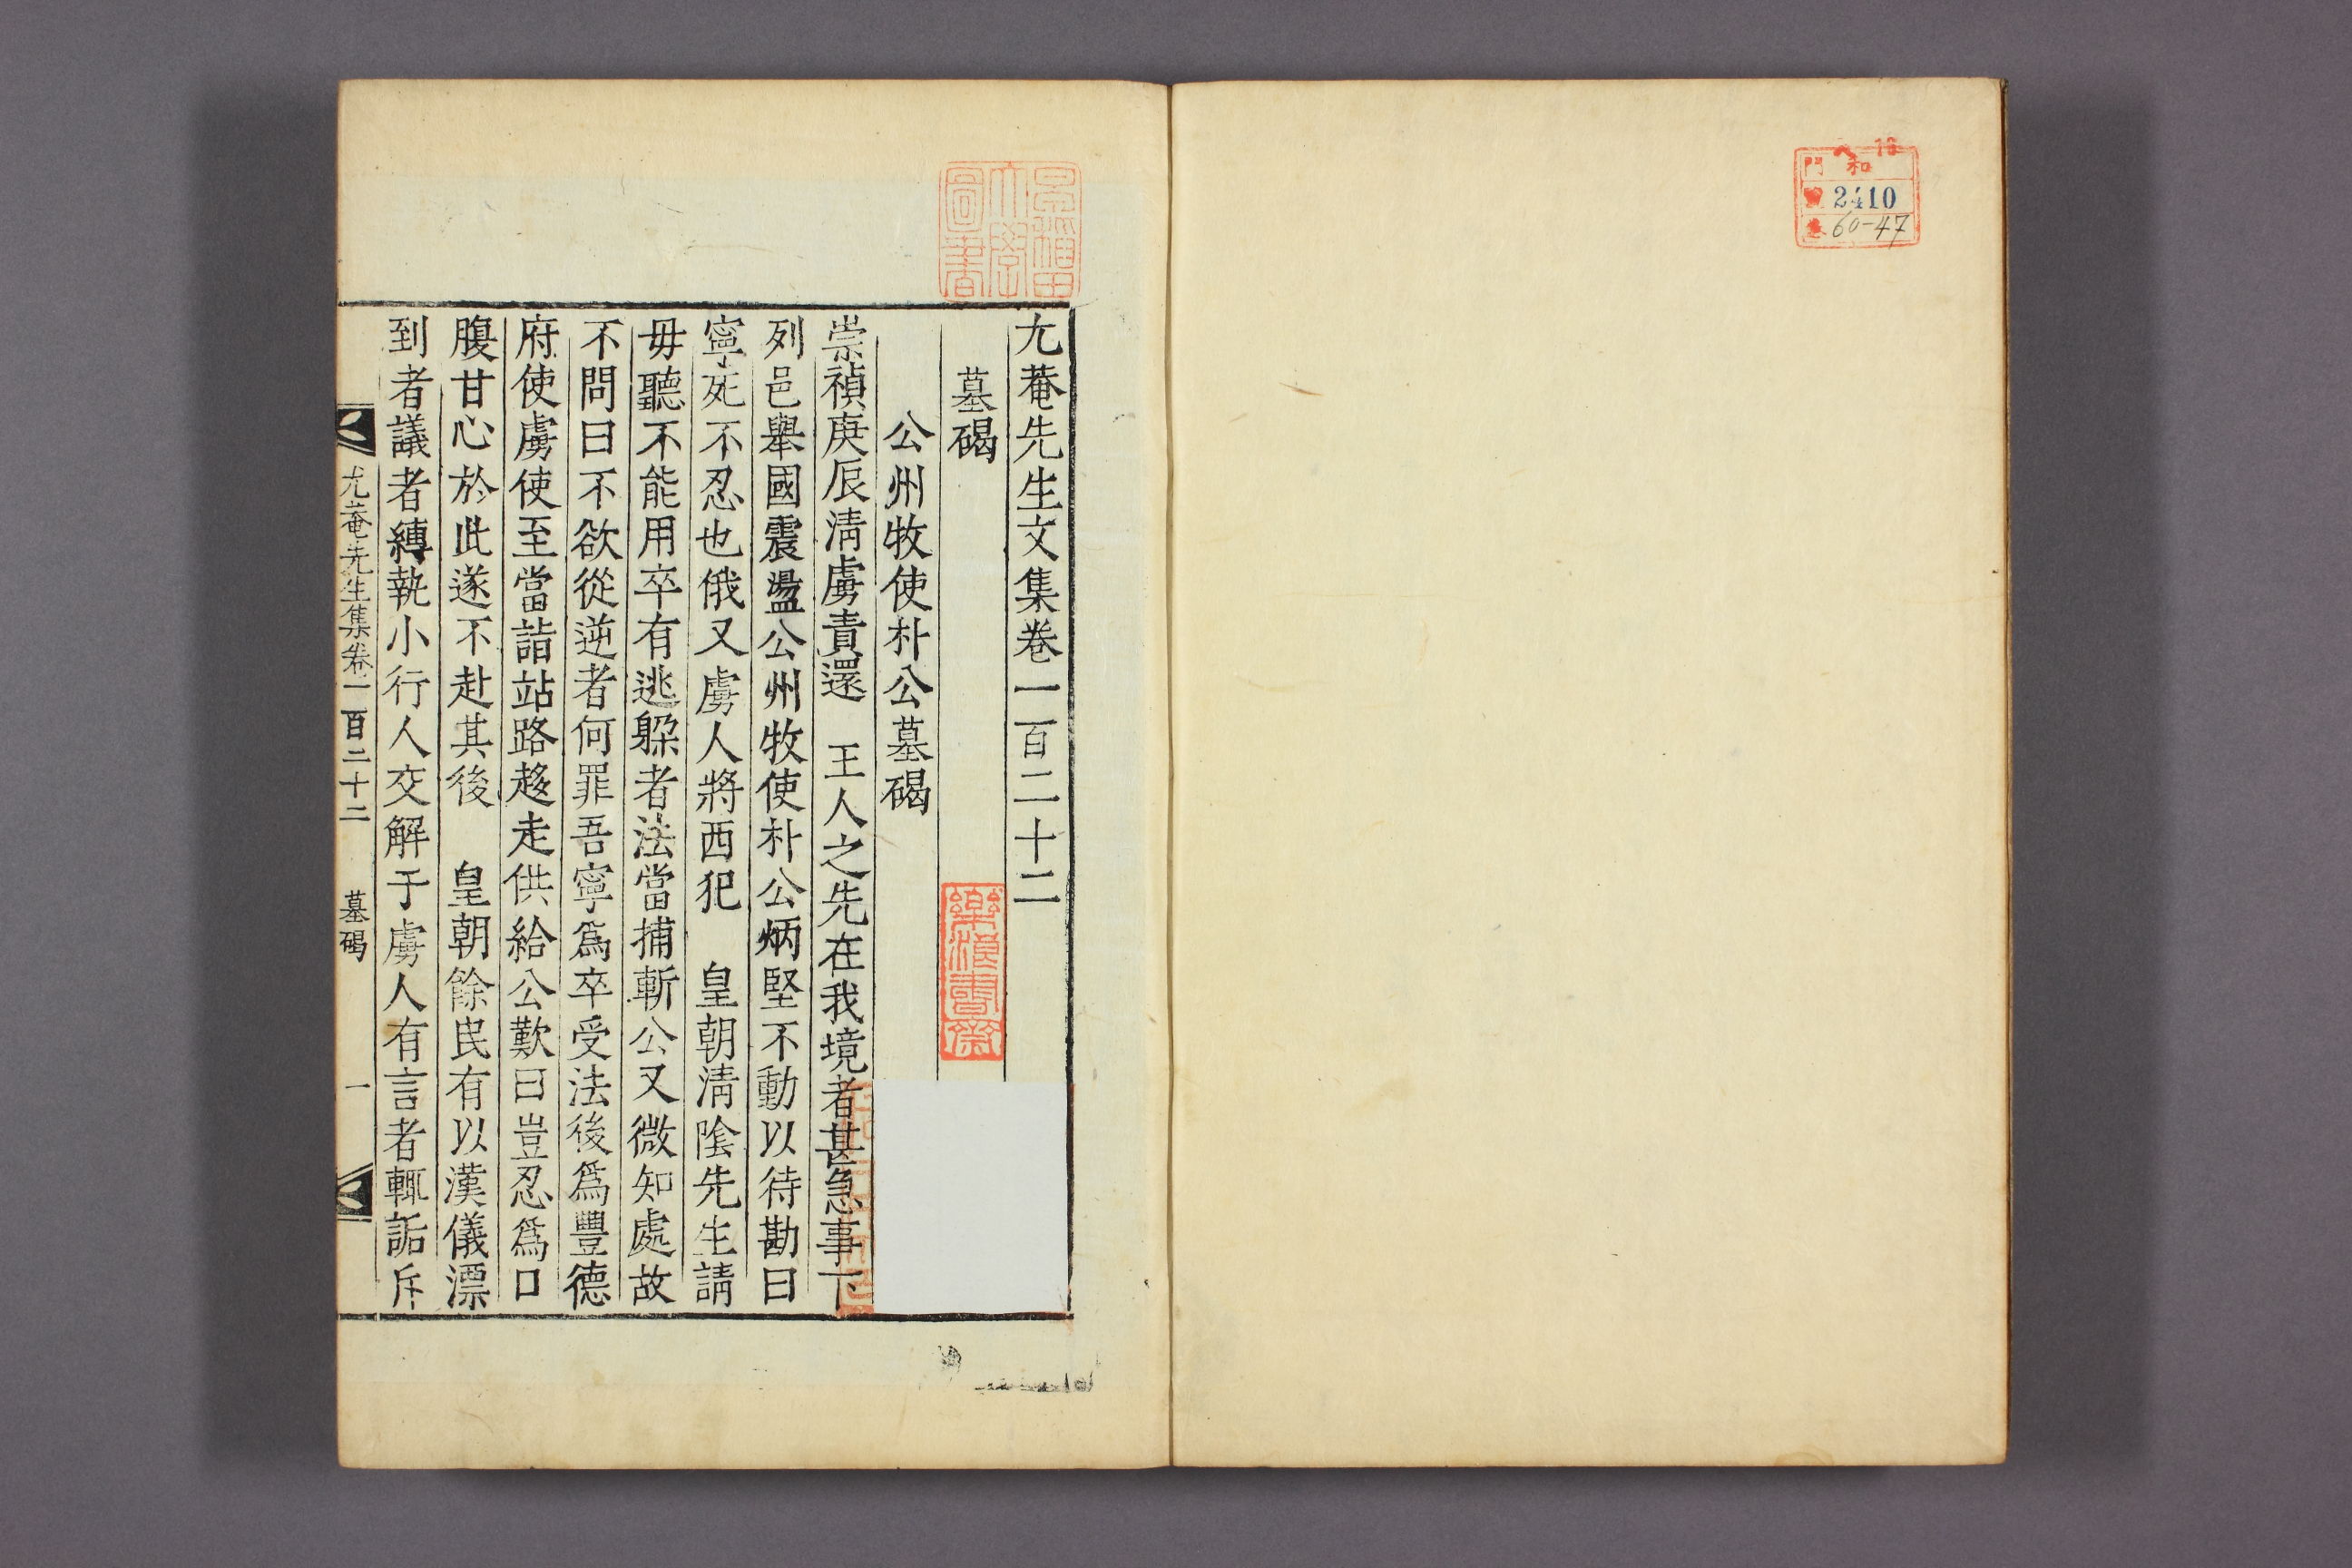 和
門
2410
60-47
早稲田
大學
圖書
尤菴先生文集卷一百二十二
墓碣
樂浪書齋
公州牧使朴公墓碣
崇禎庚辰淸虜責還 王人之先在我境者甚急事下
列邑擧國震盪公州牧使朴公炳堅不動以待勘曰
寧死不忍也俄又虜人將西犯 皇朝淸陰先生請
毋聽不能用卒有逃躱者法當捕斬公又微知處故
不問曰不欲從逆者何罪吾寧爲卒受法後爲豐德
府使虜使至當詣站路趍走供給公歎曰豈忍爲口
腹甘心於此遂不赴其後 皇朝餘民有以漢儀漂
到者議者縛執小行人交解于虜人有言者輒詬斥
尤菴先生集卷一百二十二 墓碣 一